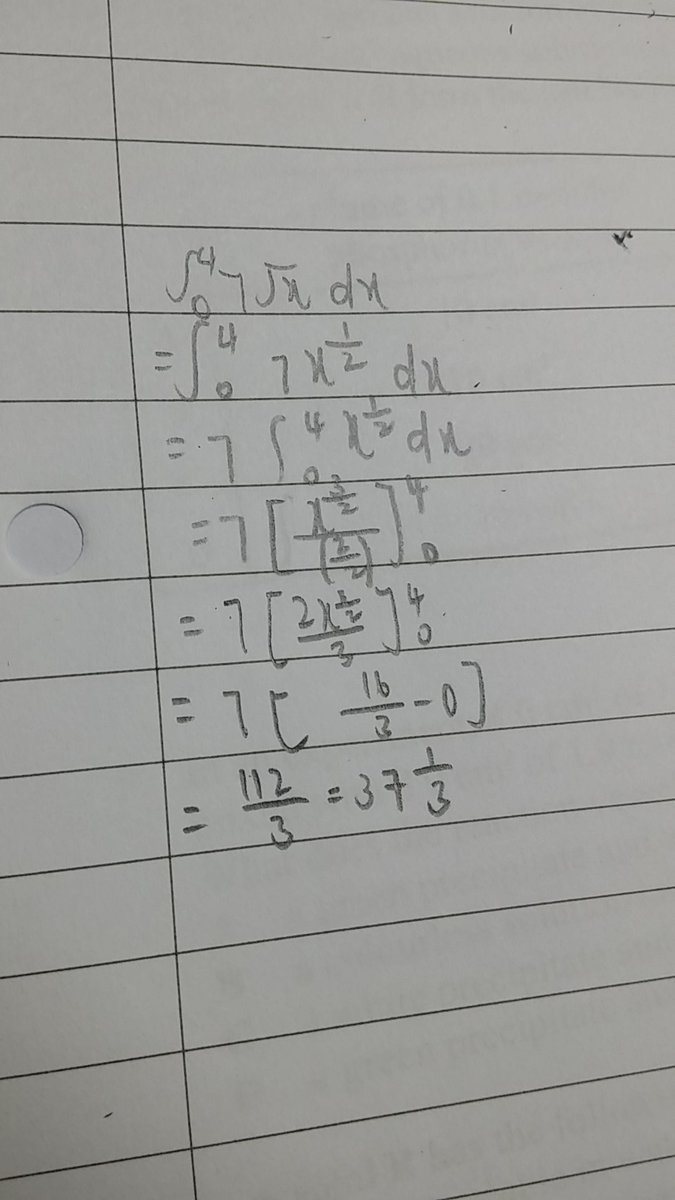 ∫₀⁴ 7√x dx
= ∫₀⁴ 7x^(1/2) dx
= 7 ∫₀⁴ x^(1/2) dx
= 7 [x^(3/2)/(3/2)]₀⁴
= 7 [2x^(3/2)/3]₀⁴
= 7 [16/3 - 0]
= 112/3 = 37 1/3